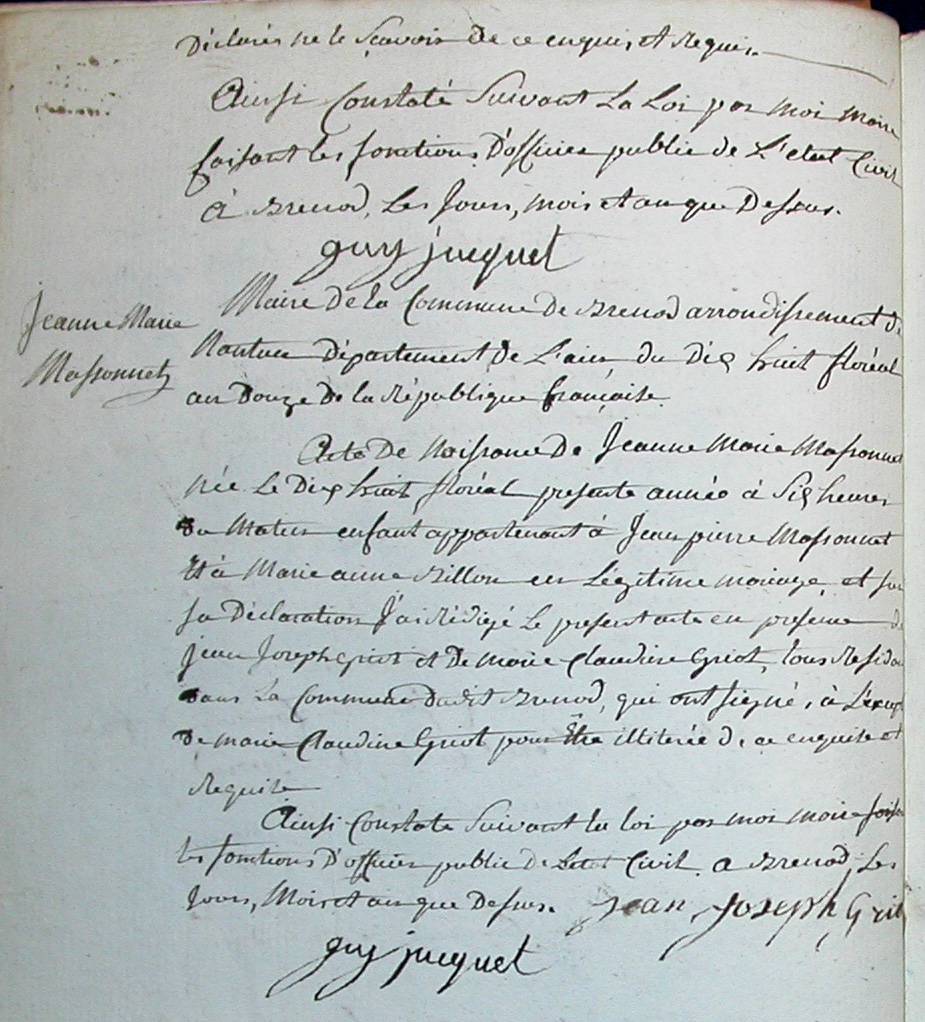 Déclarés ne le Sçavoir de ce enquis et Requis.
Ainsi Constaté Suivant La Loi par moi maire
faisant les fonctions D'officier public de L'etat Civil
à Brenod, Les Jours, mois et an que Dessus.
guy jucquet
Jeanne Marie
Massonnet
Maire de la Commune de Brenod arrondissement de
Nantua Département de L'ain du dix huit floréal
an Douze De la République française
Acte De Naissance De Jeanne Marie Massonnet
Née Le Dix huit floréal presente année à Six heures
du Matin enfant appartenant à Jean pierre Massonnet
Et à Marie anne Billon en Légitime mariage, et sur
sa Déclaration J'ai Rédigé Le present acte en presence de
jean Joseph Griot et De marie Claudine Griot, tous Résida
dans La Commune Dudit Brenod, qui ont signé, à L'excep
De marie Claudine Griot pour Etre illiterée De ce enquise et
Requise
Ainsi Constaté Suivant la loi par moi maire fais
les fonctions D'officier public de L'etat Civil a Brenod, Les
Jours, Mois et an que Dessus. Jean Joseph Griot
guy jucquet